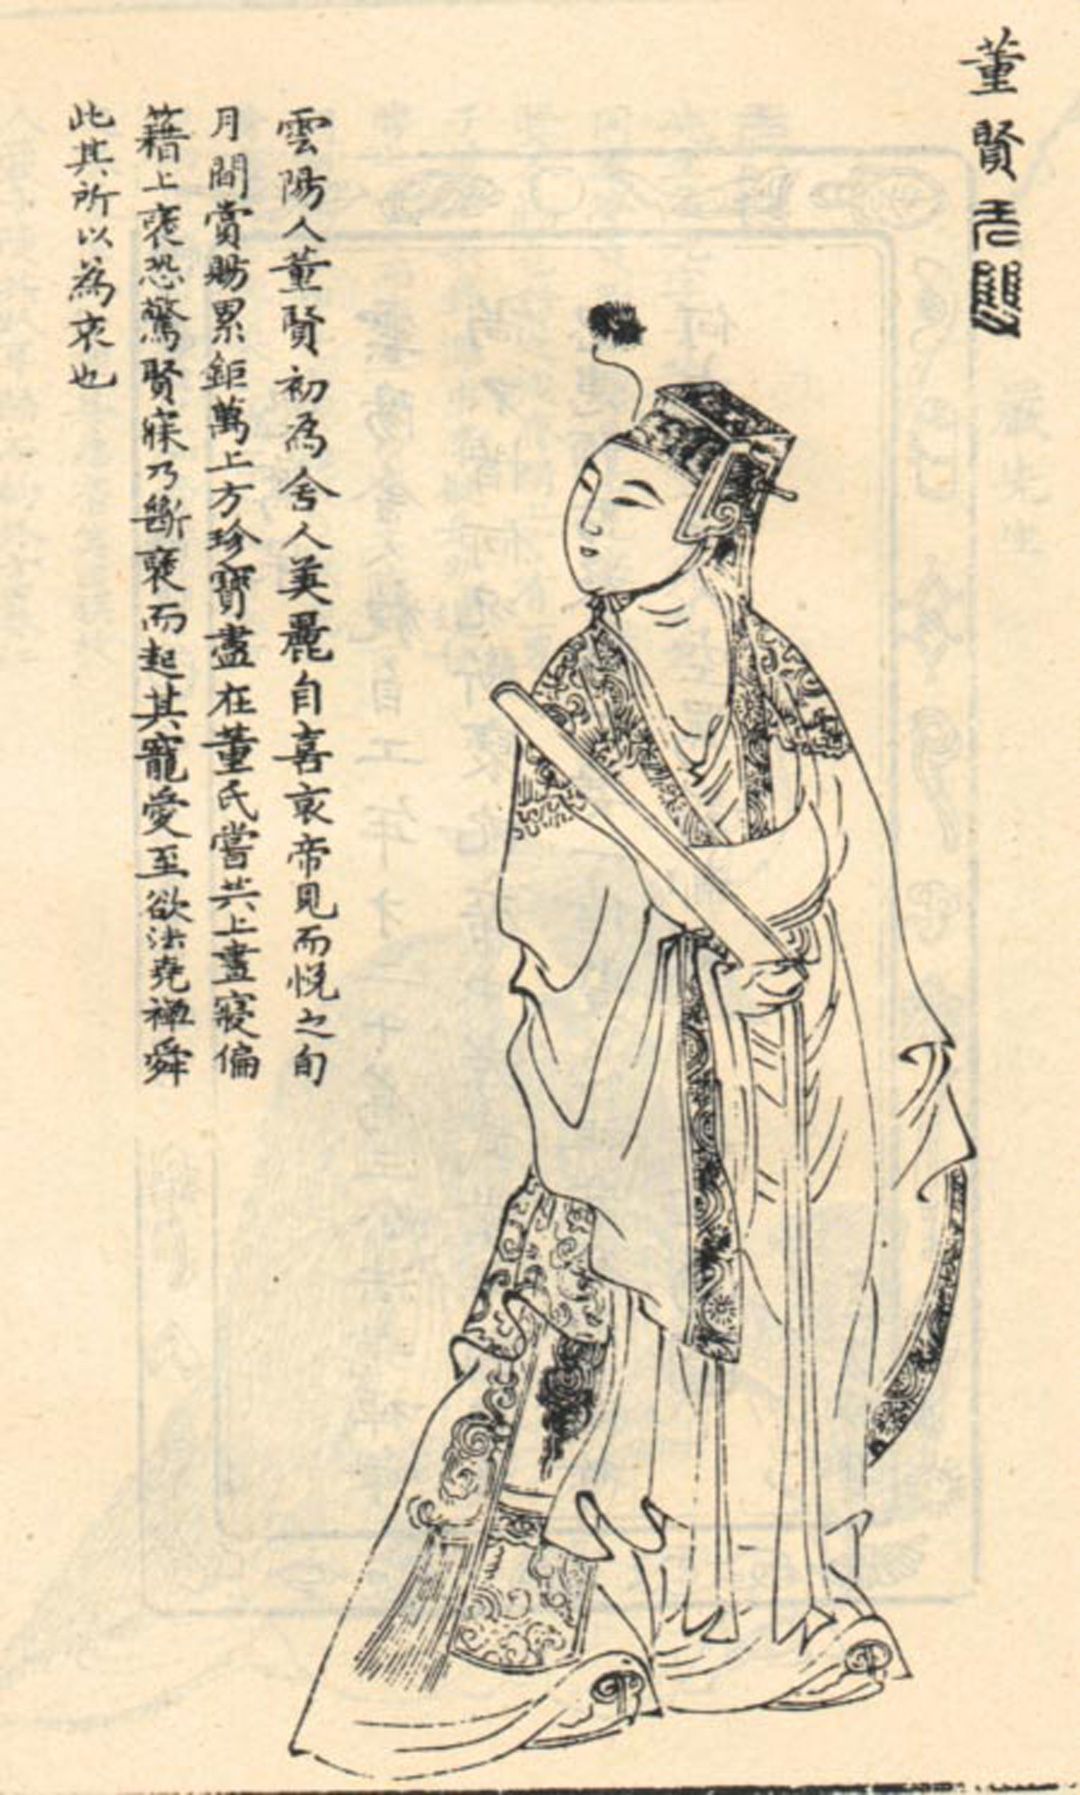 董賢 无雙
雲陽人董賢初為舍人美麗自喜哀帝見而悅之旬
月間賞賜累鉅萬上方珍寶盡在董氏嘗共上晝寢偏
藉上褎恐驚賢寐乃斷褎而起其寵愛至欲法堯禪舜
此其所以為哀也